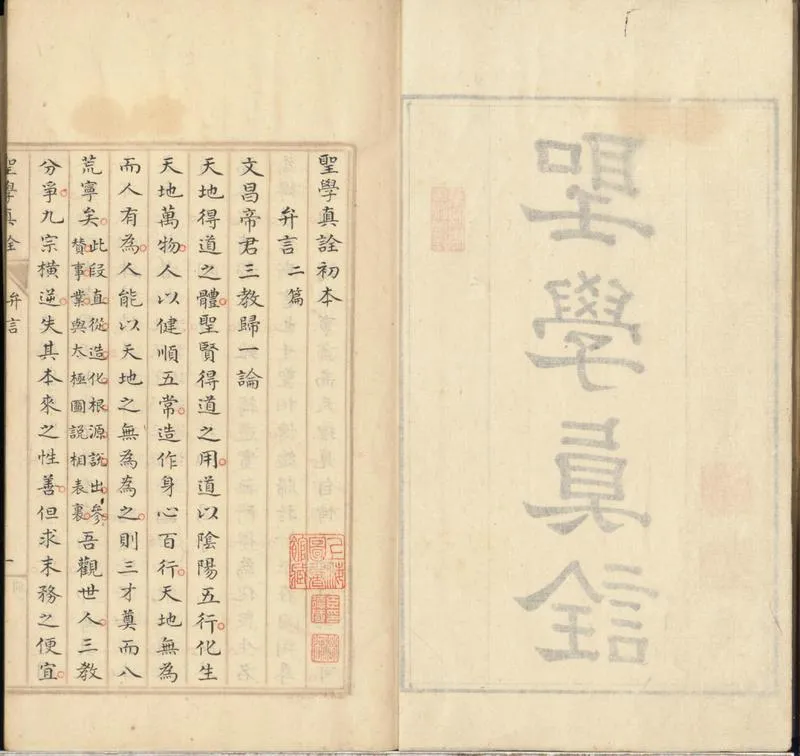 聖學真詮
聖學真詮初本
弁言二篇
文昌帝君三教歸一論
天地得道之體聖賢得道之用道以陰陽五行化生
天地萬物人以健順五常造作身心百行天地無為
而人有為人能以天地之無為為之則三才奠而八
荒寧矣此段直從造化根源說出參贊事業與太極圖說相表裏吾觀世人三教
分爭九宗橫逆失其本來之性善但求末務之便宜
聖學真詮
弁言
一